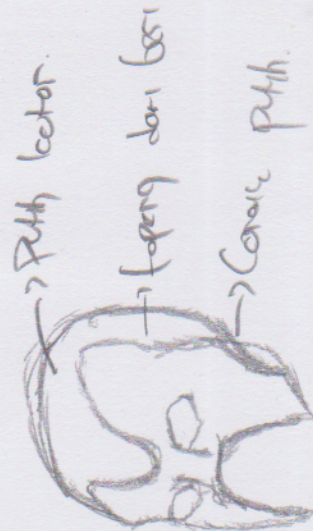 → Putih kotor.
→ topeng dari besi
→ Corak putih.